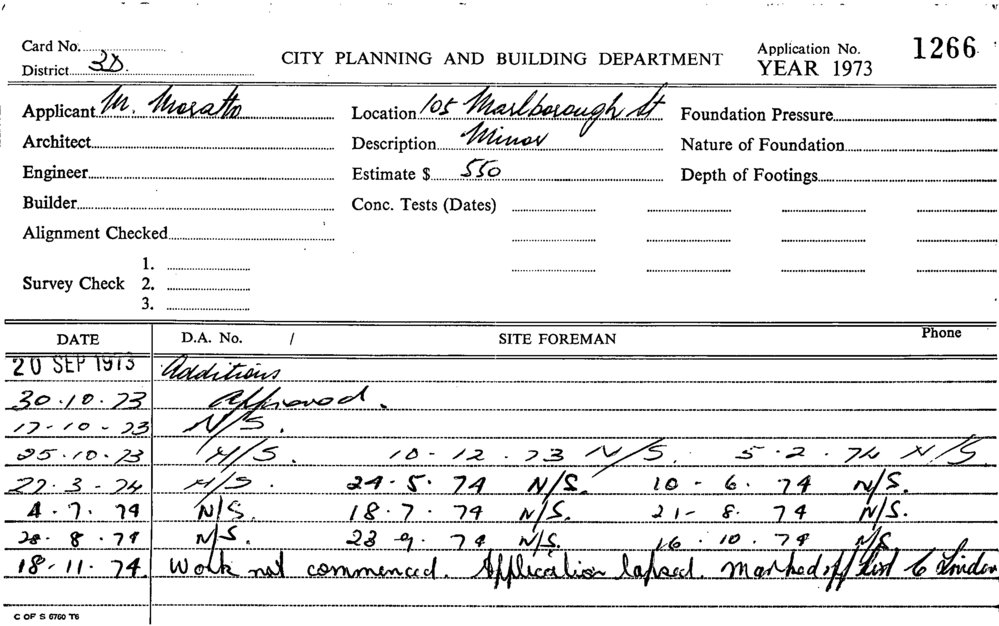 Card No.
District 3D.
CITY PLANNING AND BUILDING DEPARTMENT
Application No. 1266
YEAR 1973
Applicant M. Moratto
Location 105 Marlborough St
Foundation Pressure
Architect
Description Minor
Nature of Foundation
Engineer
Estimate $ 550
Depth of Footings
Builder
Conc. Tests (Dates)
Alignment Checked
Survey Check 1.
2.
3.
DATE D.A. No. / SITE FOREMAN Phone
20 SEP 1973 Additions
30.10.73 Approved.
17-10-73 N/S.
25.10.73 N/S. 10-12.73 N/S. 5.2.74 N/S
27.3-74 N/S. 24.5.74 N/S. 10-6.74 N/S.
4.7.74 N/S. 18.7.74 N/S. 21-8.74 N/S.
28.8.74 N/S. 23 9.74 N/S. 16.10.74 N/S.
18.11.74. Work not commenced. Application lapsed. Marked off list
C OF S 6760 T6